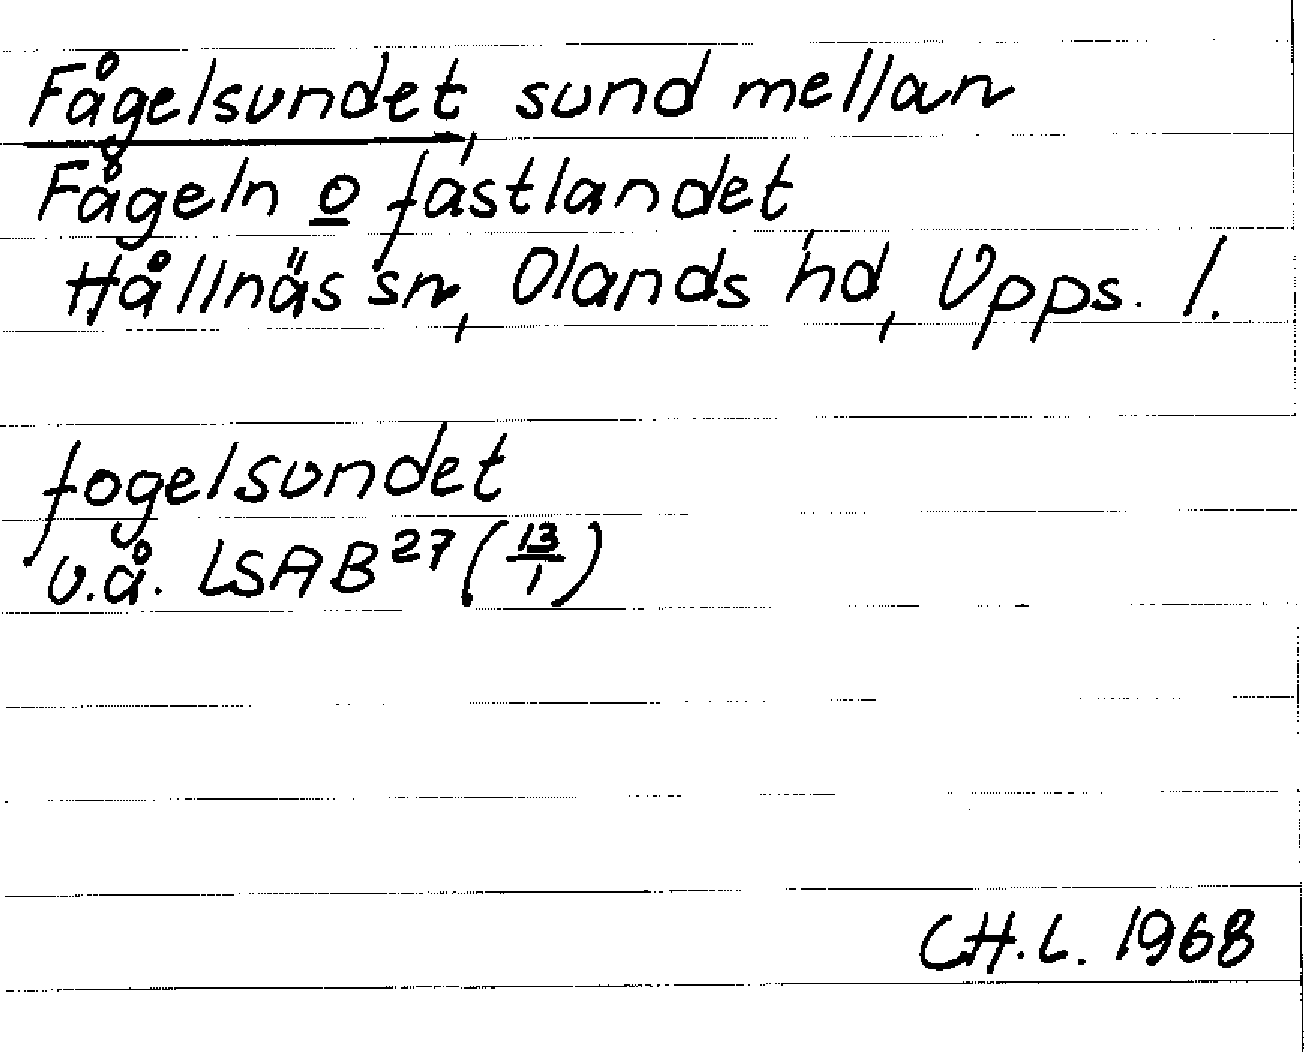 Fågelsundet, sund mellan
Fågeln o fastlandet,
Hållnäs sn, Olands hd, Upps. l.
fogelsundet
u.å. LSA B²⁷ (13/1)
CH.L. 1968